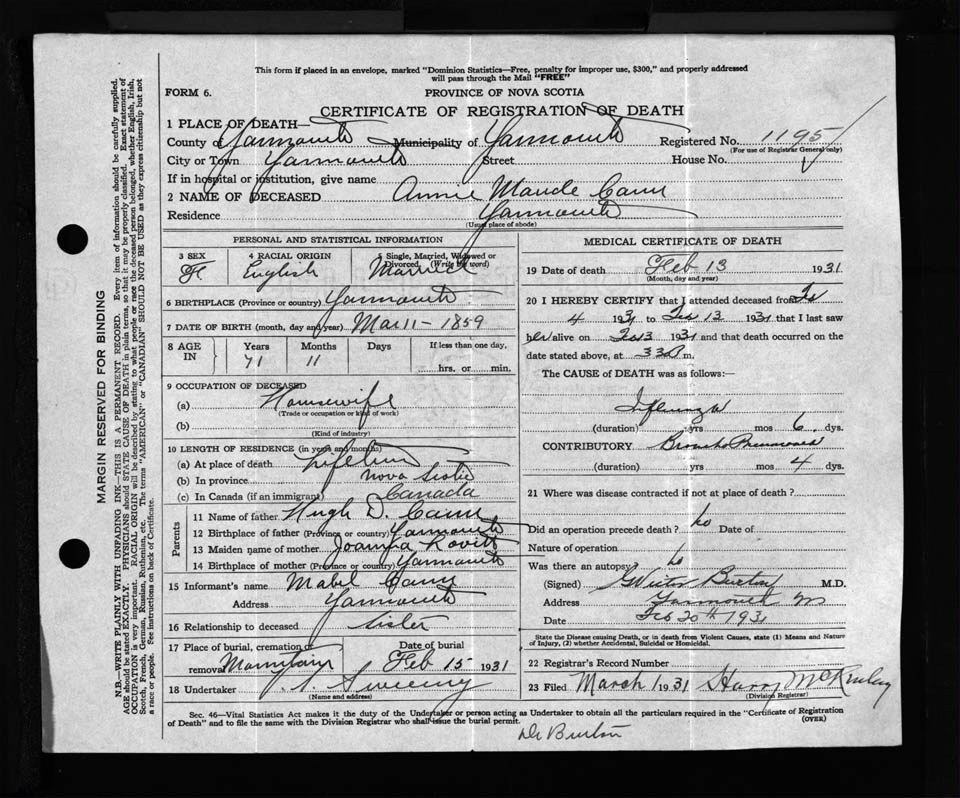 This form if placed in an envelope, marked "Dominion Statistics—Free, penalty for improper use, $300," and properly addressed
will pass through the Mail "FREE"
FORM 6.
PROVINCE OF NOVA SCOTIA
CERTIFICATE OF REGISTRATION OF DEATH
1 PLACE OF DEATH—
County of Yarmouth Municipality of Yarmouth Registered No. 1195
(For use of Registrar General only)
City or Town Yarmouth Street House No.
If in hospital or institution, give name
2 NAME OF DECEASED Annie Maude Cann
Residence Yarmouth
(Usual place of abode)
PERSONAL AND STATISTICAL INFORMATION
3 SEX 4 RACIAL ORIGIN 5 Single, Married, Widowed or
Divorced. (Write the word)
English Married
6 BIRTHPLACE (Province or country) Yarmouth
7 DATE OF BIRTH (month, day and year) Mar 11 - 1859
8 AGE IN Years Months Days If less than one day,
71 11 hrs. or min.
9 OCCUPATION OF DECEASED
(a) Housewife
(Trade or occupation or kind of work)
(b)
(Kind of industry)
10 LENGTH OF RESIDENCE (in years and months)
(a) At place of death Lifetime
(b) In province Nova Scotia
(c) In Canada (if an immigrant) Canada
Parents
11 Name of father Hugh D. Cann
12 Birthplace of father (Province or country) Yarmouth
13 Maiden name of mother Joanna Lovitt
14 Birthplace of mother (Province or country) Yarmouth
15 Informant's name Mabel Cann
Address Yarmouth
16 Relationship to deceased Sister
17 Place of burial, cremation or Date of burial
removal Feb 15 1931
18 Undertaker Sweeny
(Name and address)
MEDICAL CERTIFICATE OF DEATH
19 Date of death Feb 13 1931
(Month, day and year)
20 I HEREBY CERTIFY that I attended deceased from Feb
4 1931 to Feb 13 1931 that I last saw
her alive on 1931 and that death occurred on the
date stated above, at m.
The CAUSE of DEATH was as follows:—
Influenza
(duration) yrs mos 6 dys.
CONTRIBUTORY Broncho Pneumonia
(duration) yrs mos 4 dys.
21 Where was disease contracted if not at place of death?
Did an operation precede death? no Date of
Nature of operation
Was there an autopsy? no
(Signed) Burton M.D.
Address Yarmouth NS
Date Feb 20th 1931
State the Disease causing Death, or in death from Violent Causes, state (1) Means and Nature
of Injury, (2) whether Accidental, Suicidal or Homicidal.
22 Registrar's Record Number
23 Filed March 1931 Harry McKinlay
(Division Registrar)
Sec. 46—Vital Statistics Act makes it the duty of the Undertaker or person acting as Undertaker to obtain all the particulars required in the "Certificate of Registration
of Death" and to file the same with the Division Registrar who shall issue the burial permit.
(OVER)
Dr Burton
MARGIN RESERVED FOR BINDING
N.B.—WRITE PLAINLY WITH UNFADING INK—THIS IS A PERMANENT RECORD. Every item of information should be carefully supplied.
AGE should be stated EXACTLY. PHYSICIANS should STATE CAUSE OF DEATH in plain terms, so that it may be properly classified. Exact statement of
OCCUPATION is very important. RACIAL ORIGIN will be described by stating to what people or race the deceased person belonged, whether English, Irish,
Scotch, French, German, Russian, Ruthenian, etc. The terms "AMERICAN" or "CANADIAN" SHOULD NOT BE USED as they express citizenship but not
a race or people. See instructions on back of Certificate.